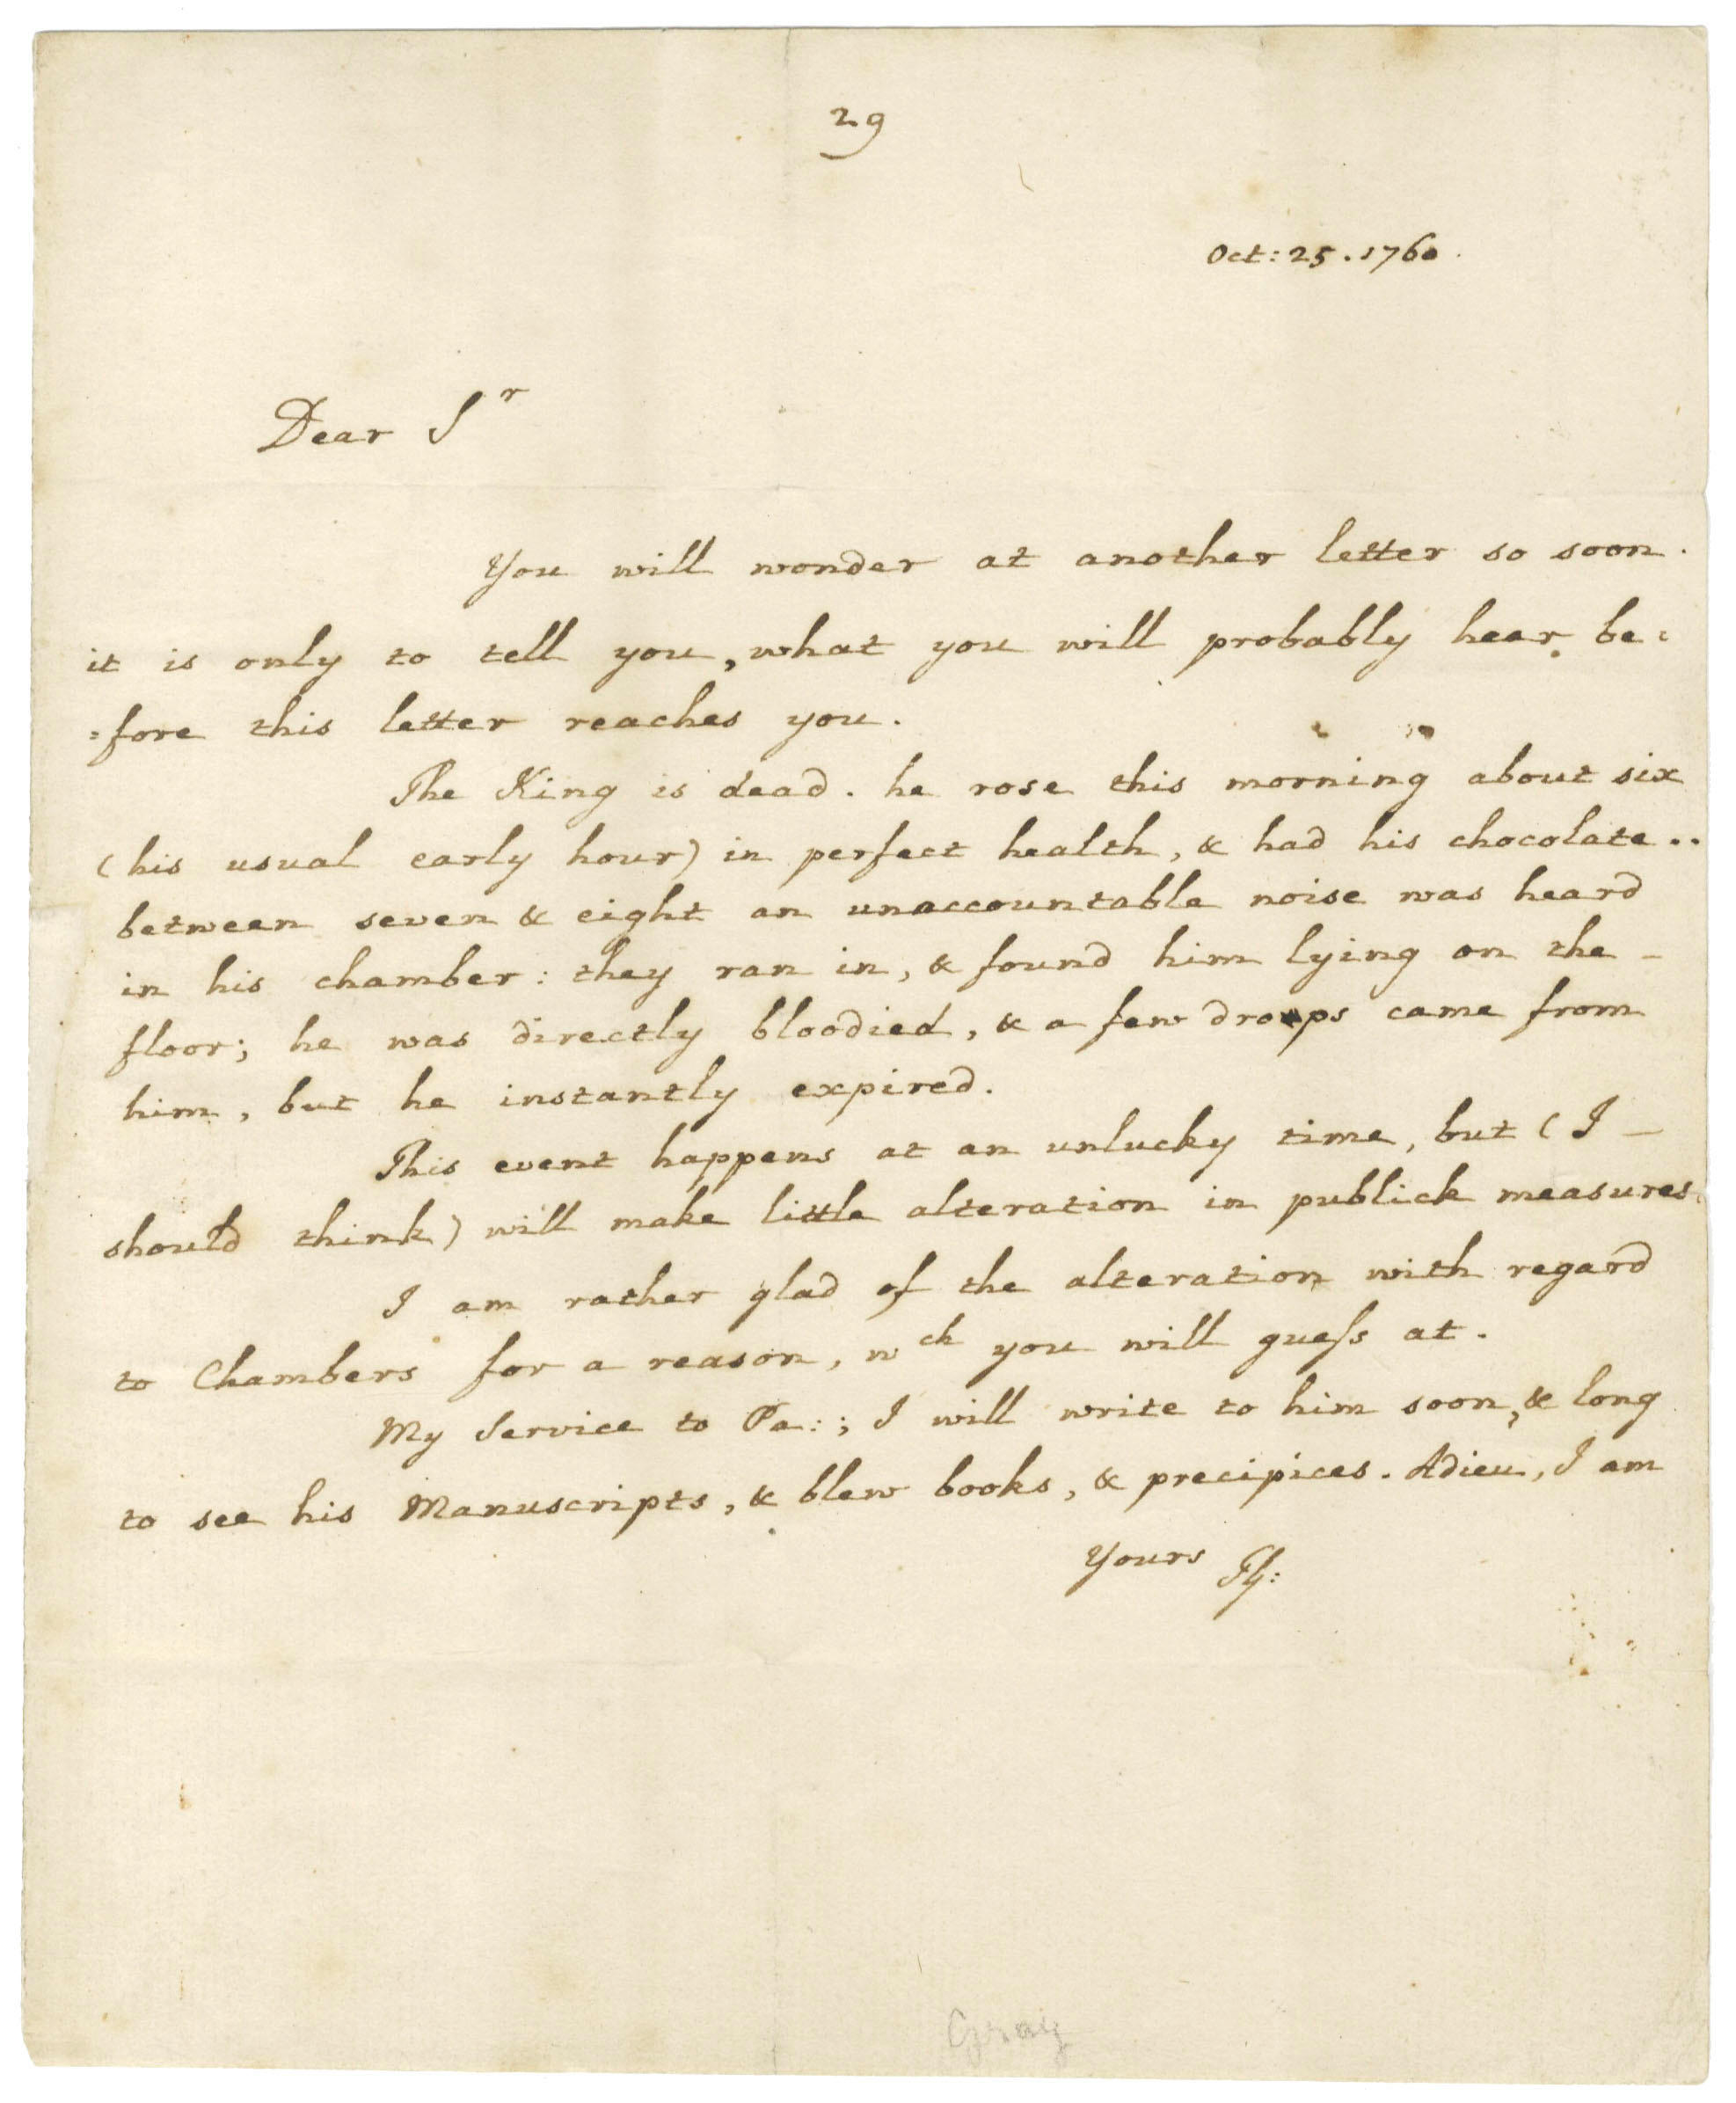 29
Oct: 25. 1760.
Dear Sr
You will wonder at another letter so soon.
it is only to tell you, what you will probably hear be:
:fore this letter reaches you.
The King is dead. he rose this morning about six
(his usual early hour) in perfect health, & had his chocolate..
between seven & eight an unaccountable noise was heard
in his chamber: they ran in, & found him lying on the –
floor; he was directly bloodied, & a few drops came from
him, but he instantly expired.
This event happens at an unlucky time, but (I –
should think) will make little alteration in publick measures.
I am rather glad of the alteration with regard
to Chambers for a reason, wch you will guess at.
My Service to Pa:; I will write to him soon, & long
to see his Manuscripts, & blew books, & precipices. Adieu, I am
Yours TG:
Gray